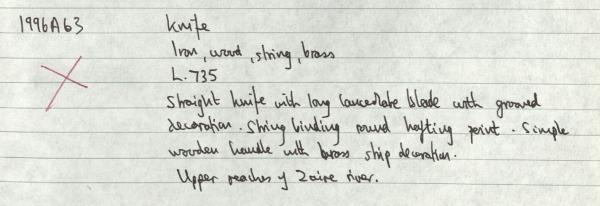 1996A63 Knife
Iron, wood, string, brass
L. 735
Straight knife with long lanceolate blade with grooved
decoration. String binding round hafting point. Simple
wooden handle with brass strip decoration.
Upper reaches of Zaire river.